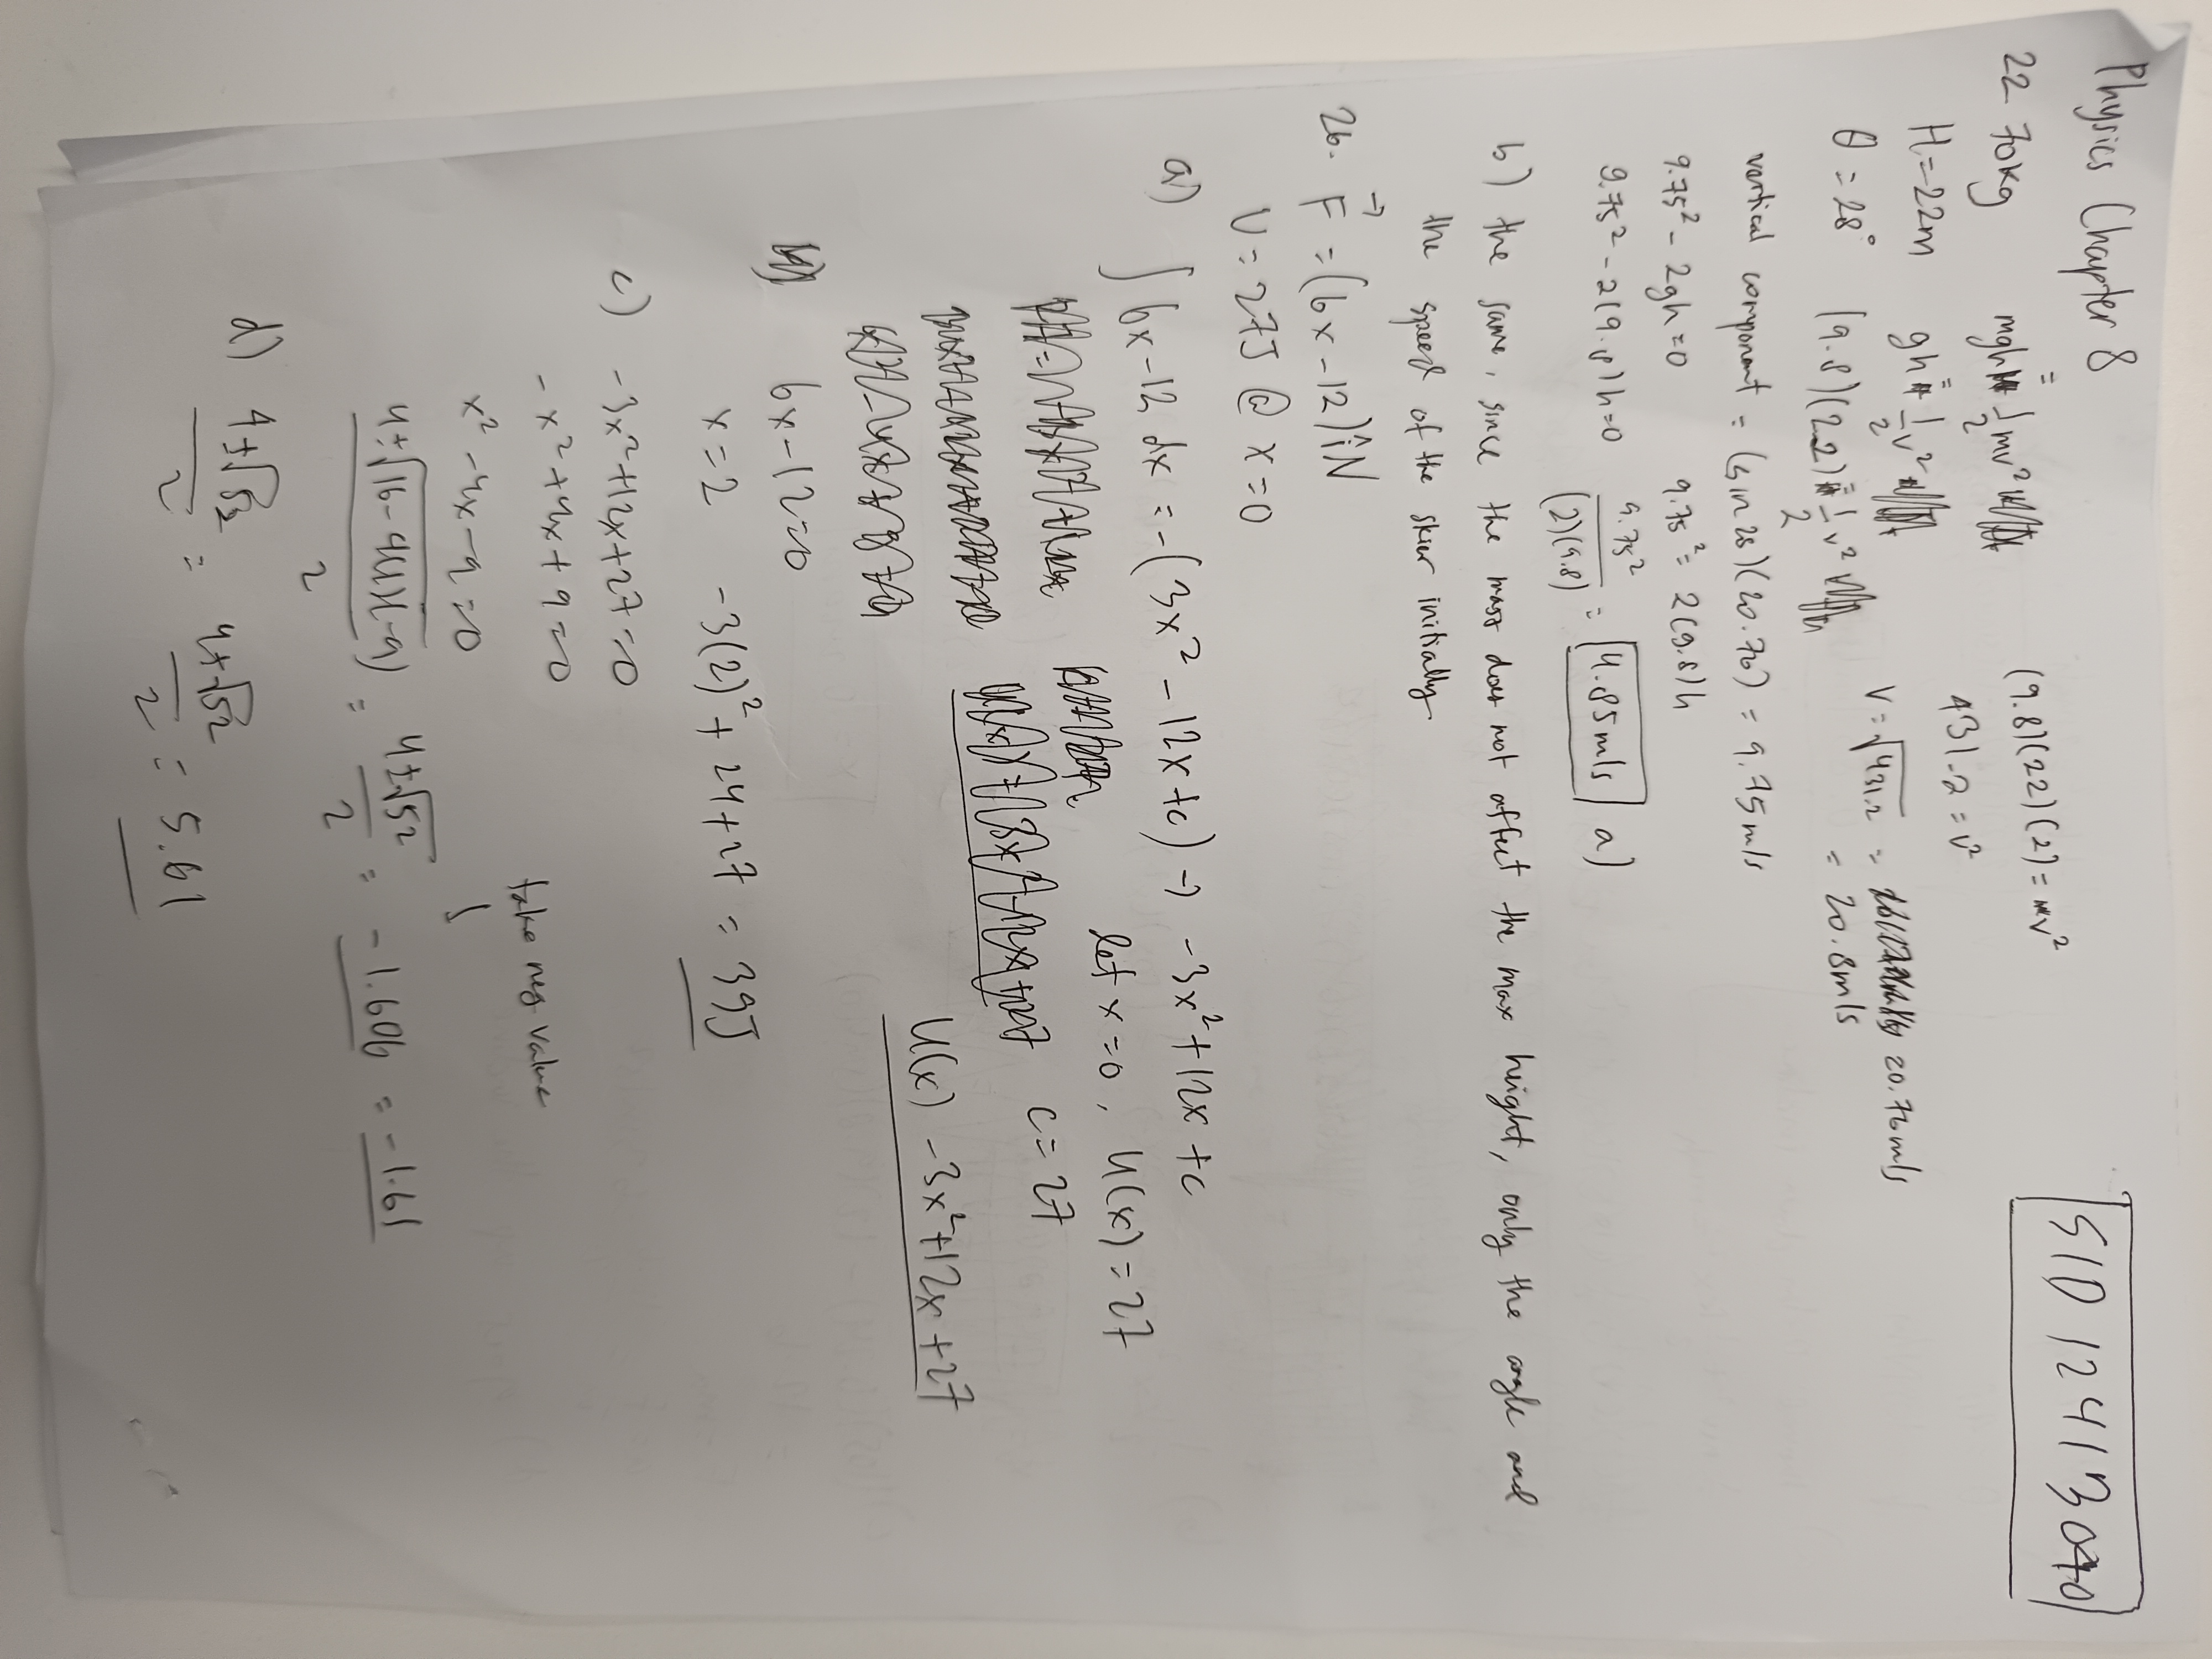 Physics Chapter 8
SID 12413040
22 70kg mgh = 1/2 mv² (9.8)(22)(2) = v²
H = 22m gh = 1/2 v² 431.2 = v²
θ = 28° (9.8)(22) = 1/2 v² v = √431.2 = 20.76 m/s
= 20.8 m/s
vertical component = (sin 28)(20.76) = 9.75 m/s
9.75² - 2gh = 0 9.75² = 2(9.8)h
9.75² - 2(9.8)h = 0 9.75²/(2)(9.8) = 4.85 m/s a)
b) the same, since the mass does not affect the max height, only the angle and
the speed of the skier initially
26. F→ = (6x - 12) î N
U = 27J @ x = 0
a) ∫ 6x - 12 dx = -(3x² - 12x + c) → -3x² + 12x + c
let x = 0, U(x) = 27
c = 27
U(x) -3x² + 12x + 27
b) 6x - 12 = 0
x = 2 -3(2)² + 24 + 27 = 39J
c) -3x² + 12x + 27 = 0
-x² + 4x + 9 = 0 take neg value
x² - 4x - 9 = 0
4 ± √16 - 4(1)(-9) / 2 = 4 ± √52 / 2 = -1.606 = -1.61
d) 4 + √52 / 2 = 4 + √52 / 2 = 5.61